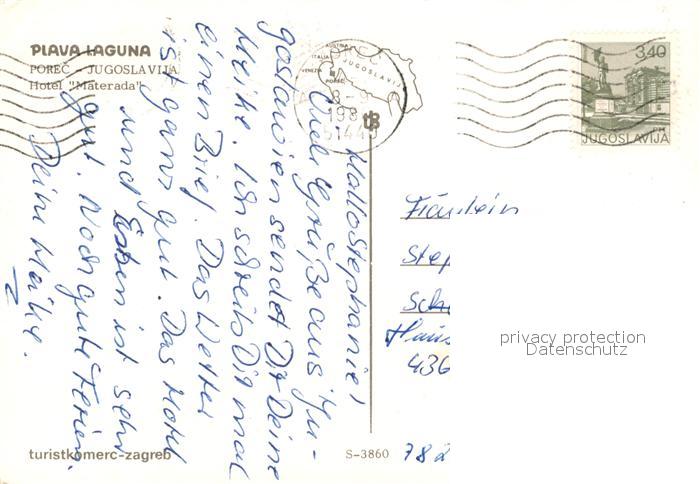 PLAVA LAGUNA
POREČ - JUGOSLAVIJA
Hotel "Materada"
Hallo Stephanie!
Viele Grüße aus Ju-
goslawien sendet Dir Deine
Meike. Ich schreib Dir mal
einen Brief. Das Wetter
ist ganz gut. Das Hotel
und Essen ist sehr
gut. Noch gute Ferien.
Deine Meike.
turistkomerc-zagreb
S-3860
AUSTRIA
ITALIA
JUGOSLAVIJA
VENEZIA
POREČ
198
51440
3.40
JUGOSLAVIJA
Fräulein
Step
Sch
Haus
436
782
privacy protection
Datenschutz